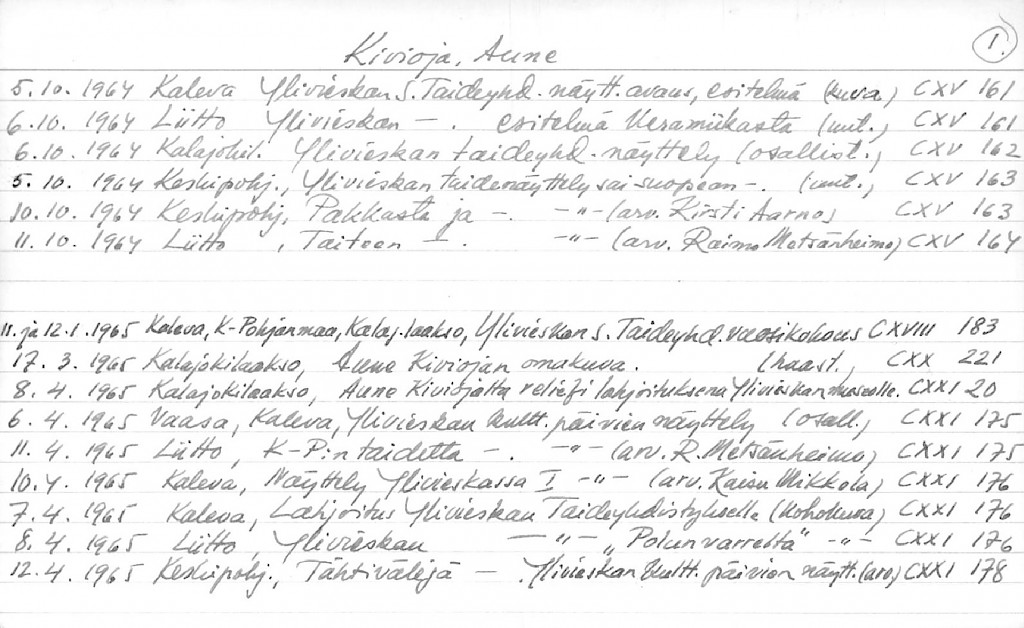 1.
Kivioja, Aune
5.10. 1964 Kaleva Ylivieskan S. Taideyhd. näytt. avaus, esitelmä (kuva) CXV 161
6.10. 1964 Liitto Ylivieskan — . esitelmä keramiikasta (mm.) CXV 161
6.10. 1964 Kalajokil. Ylivieskan taideyhd. näyttely (osallist.) CXV 162
5.10. 1964 Keskipohj., Ylivieskan taidenäyttely sai suopean —. (mm.) CXV 163
10.10. 1964 Keskipohj, Pakkasta ja —. —"— (arv. Kirsti Aarno) CXV 163
11.10. 1964 Liitto , Taiteen — . —"— (arv. Raimo Metsänheimo) CXV 164
11. ja 12.1.1965 Kaleva, K-Pohjanmaa, Kalaj.laakso, Ylivieskan S. Taideyhd. vuosikokous CXVIII 183
17.3. 1965 Kalajokilaakso, Aune Kiviojan omakuva. (haast., CXX 221
8.4. 1965 Kalajokilaakso, Aune Kiviojalta reliefi lahjoituksena Ylivieskan museolle. CXXI 20
6.4. 1965 Vaasa, Kaleva, Ylivieskan kultt. päivien näyttely (osall.) CXXI 175
11.4. 1965 Liitto, K-P:n taidetta —. —"— (arv. R. Metsänheimo) CXXI 175
10.4. 1965 Kaleva, Näyttely Ylivieskassa I —"— (arv. Kaisu Mikkola) CXXI 176
7.4. 1965 Kaleva, Lahjoitus Ylivieskan Taideyhdistykselle (kohokuva) CXXI 176
8.4. 1965 Liitto, Ylivieskan —"— „Polunvarrelta" —"— CXXI 176
12.4. 1965 Keskipohj., Tähtivälejä — . Ylivieskan kultt. päivien näytt. (arv.) CXXI 178